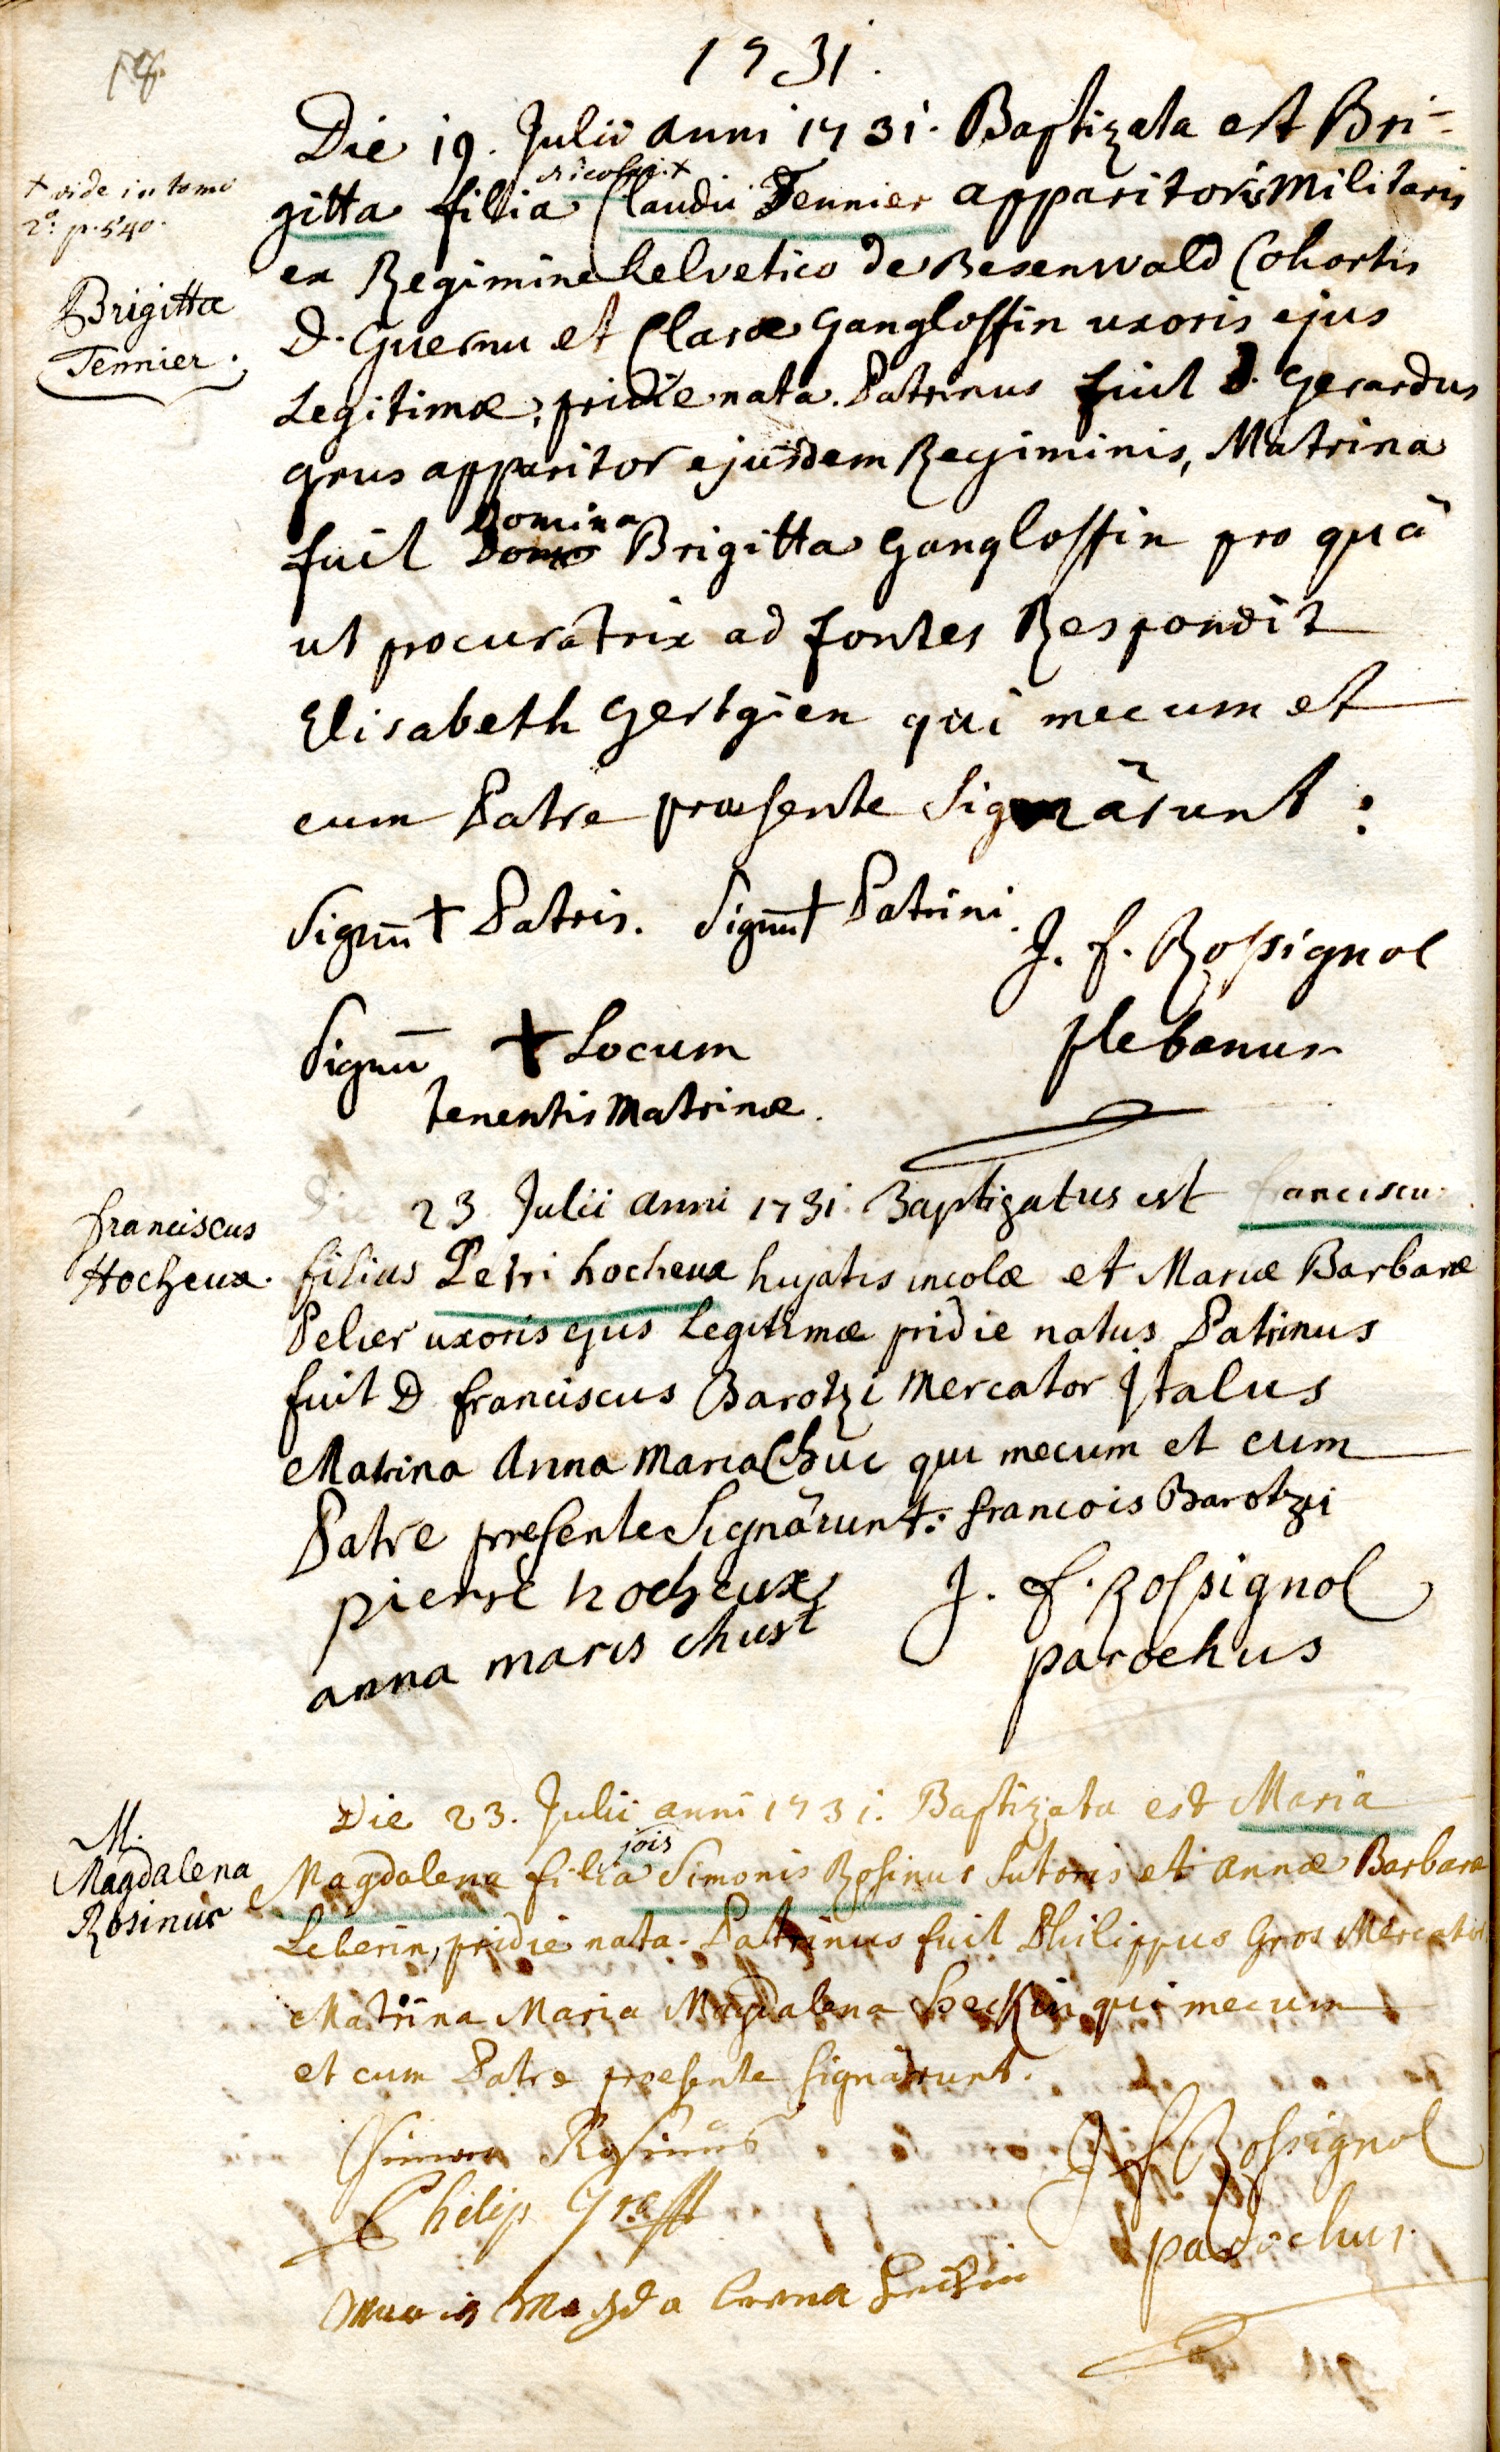 1731.
Die 19. Julii anni 1731. Baptizata est Bri-
nicolai +
gitta filia Claudii Tennier apparitoris Militaris
+ vide in tomo
2o. p. 540.
ex Regimine helvetico de Besenwald Cohortis
Brigitta
Tennier.
D. Guernu et Claræ Gangloffin uxoris ejus
Legitimæ, pridie nata. Patrinus fuit D. Gerardus
grus apparitor ejusdem Regiminis, Matrina
Domina
fuit Brigitta Gangloffin pro quâ
ut procuratrix ad fontes Respondit
Elisabeth Gertgien qui mecum et
cum Patre præsente Signârunt :
Signū + Patris. Signū + Patrini.
J. f. Rossignol
plebanus
Signū + Locum
tenentis Matrinæ.
Die 23 Julii anni 1731. Baptizatus est franciscus
franciscus
Hocheux.
filius Petri hocheux hujatis incolæ et Mariæ Barbaræ
Pelier uxoris ejus Legitimæ pridie natus Patrinus
fuit D franciscus Barotzi Mercator Italus
Matrina Anna Maria Chuc qui mecum et cum
Patre præsente Signârunt: francois Barotzi
pierre hocheux
J. f. Rossignol
parochus
anna maris chust
Die 23. Julii anni 1731. Baptizata est Maria
jois
M.
Magdalena
Rosinus
Magdalena filia Simonis Rosinus Sutoris et annæ Barbaræ
Leberin, pridie nata. Patrinus fuit Philippus Gros Mercator
Matrina Maria Magdalena heckin qui mecum
et cum Patre præsente signârunt.
Simon Rosinus
J f Rossignol
parochus.
Philip
Maria Magda